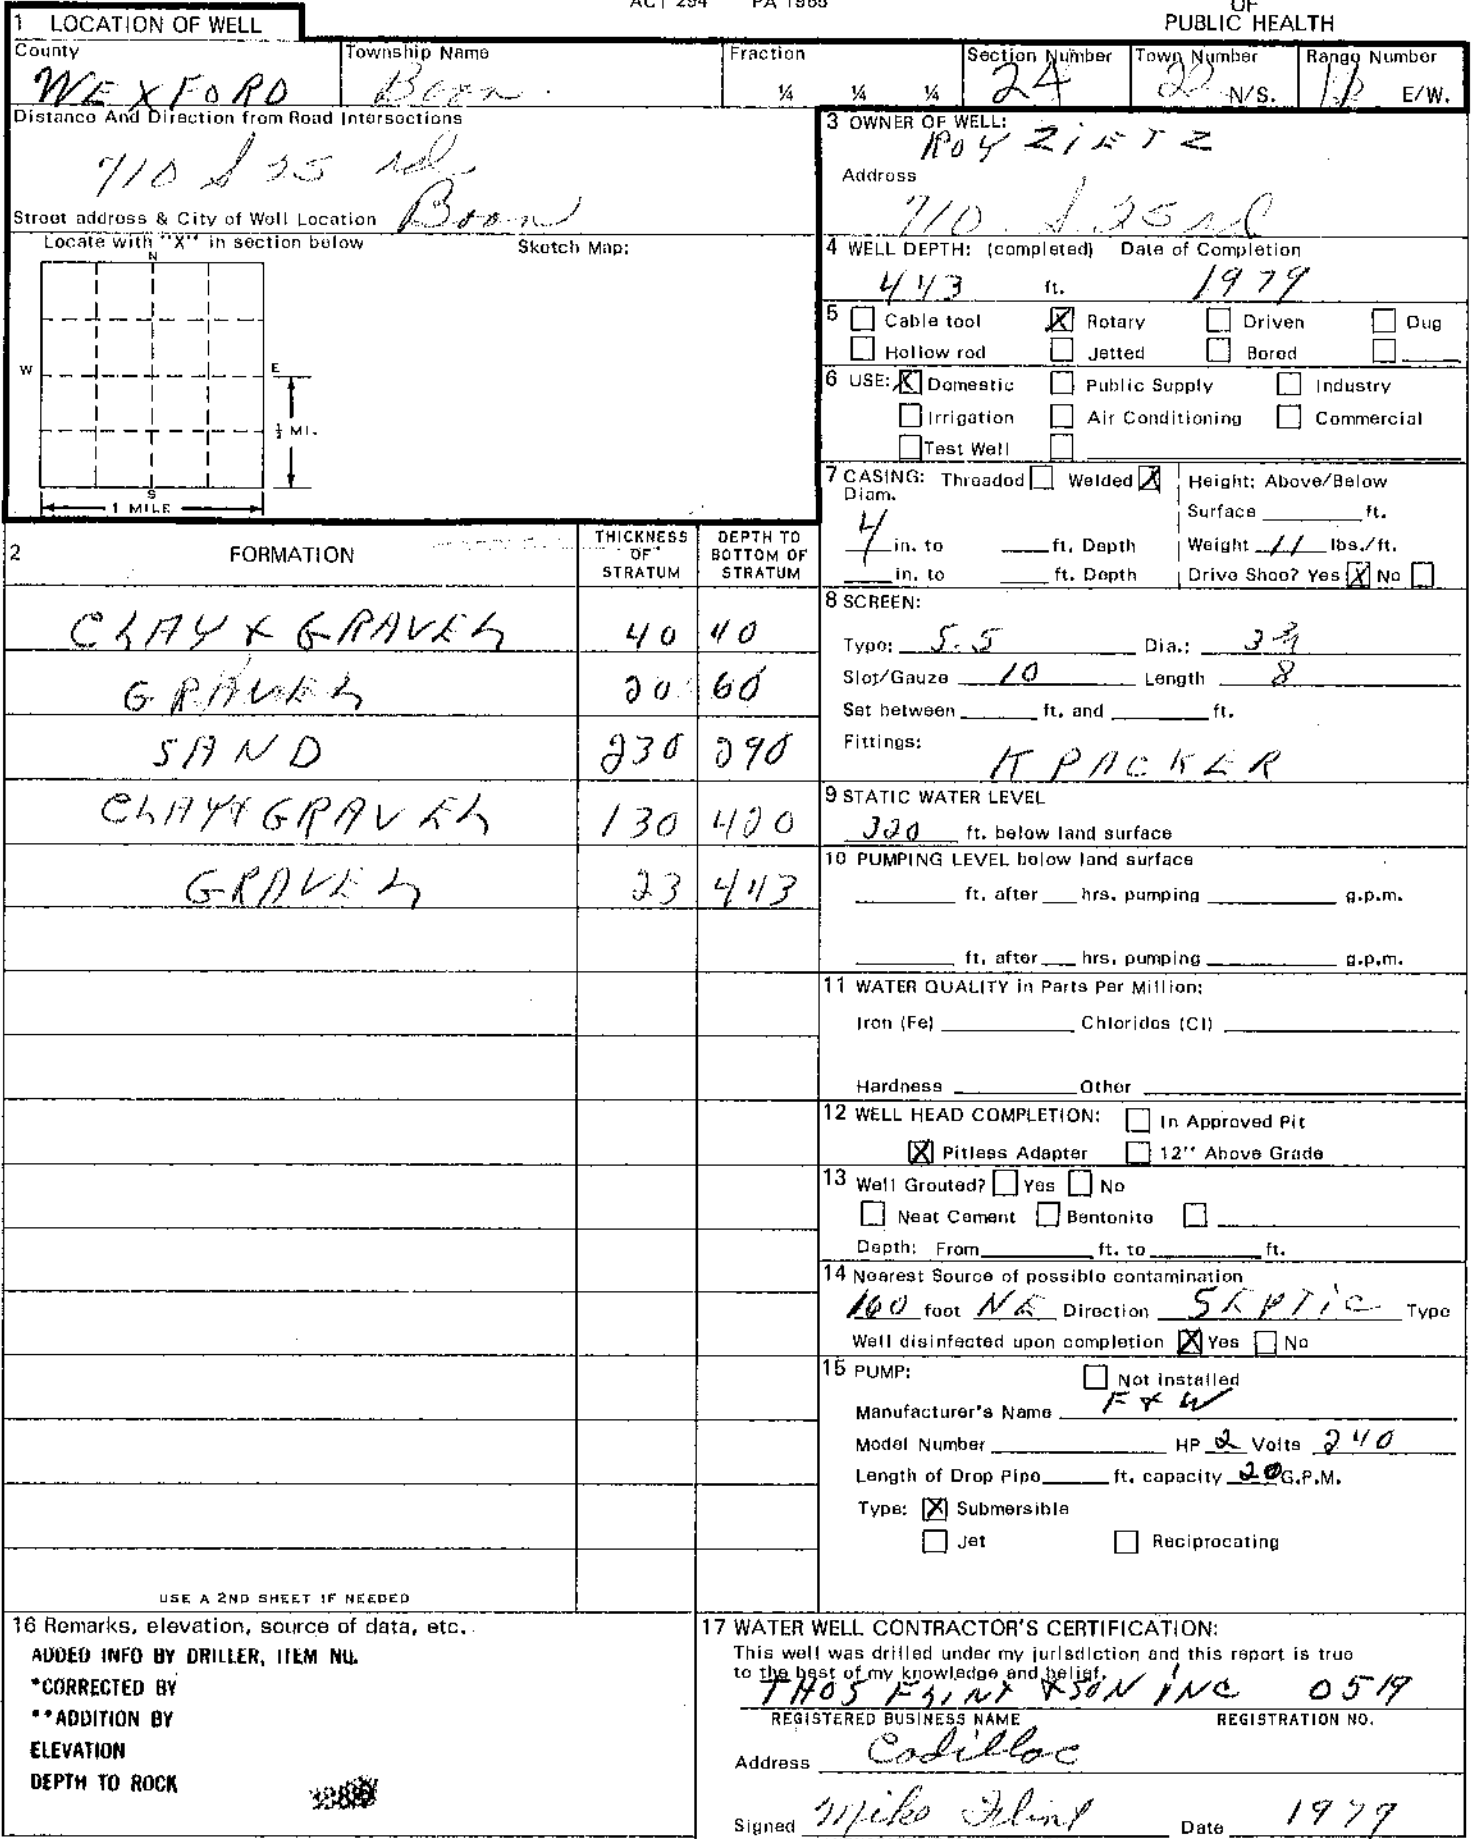 ACT 294 PA 1965
OF
PUBLIC HEALTH
1 LOCATION OF WELL
County
Township Name
Fraction
Section Number
Town Number
Range Number
WEXFORD
Boon
¼ ¼ ¼
24
22 N/S.
E/W.
Distance And Direction from Road Intersections
710 S 25 rd
Street address & City of Well Location Boon
Locate with "X" in section below
Sketch Map:
N
W
E
½ MI.
S
1 MILE
3 OWNER OF WELL:
ROY ZIETZ
Address
710 S. 25 rd
4 WELL DEPTH: (completed) Date of Completion
443 ft. 1979
5 Cable tool X Rotary Driven Dug
Hollow rod Jetted Bored
6 USE: X Domestic Public Supply Industry
Irrigation Air Conditioning Commercial
Test Well
7 CASING: Threaded Welded X
Diam.
4 in. to ft. Depth
in. to ft. Depth
Height: Above/Below
Surface ft.
Weight 11 lbs./ft.
Drive Shoe? Yes X No
2 FORMATION
THICKNESS OF STRATUM
DEPTH TO BOTTOM OF STRATUM
CLAY & GRAVEL 40 40
GRAVEL 20 60
SAND 230 290
CLAY & GRAVEL 130 420
GRAVEL 23 443
8 SCREEN:
Type: S.S Dia.: 3 3/4
Slot/Gauze 10 Length 8
Set between ft. and ft.
Fittings:
K PACKER
9 STATIC WATER LEVEL
320 ft. below land surface
10 PUMPING LEVEL below land surface
ft. after hrs. pumping g.p.m.
ft. after hrs. pumping g.p.m.
11 WATER QUALITY in Parts Per Million:
Iron (Fe) Chlorides (Cl)
Hardness Other
12 WELL HEAD COMPLETION: In Approved Pit
X Pitless Adapter 12" Above Grade
13 Well Grouted? Yes No
Neat Cement Bentonite
Depth: From ft. to ft.
14 Nearest Source of possible contamination
100 feet NE Direction SEPTIC Type
Well disinfected upon completion X Yes No
15 PUMP: Not installed
Manufacturer's Name F & W
Model Number HP 2 Volts 240
Length of Drop Pipe ft. capacity 20 G.P.M.
Type: X Submersible
Jet Reciprocating
USE A 2ND SHEET IF NEEDED
16 Remarks, elevation, source of data, etc.
ADDED INFO BY DRILLER, ITEM NO.
*CORRECTED BY
**ADDITION BY
ELEVATION
DEPTH TO ROCK
17 WATER WELL CONTRACTOR'S CERTIFICATION:
This well was drilled under my jurisdiction and this report is true
to the best of my knowledge and belief.
THOS FLINT & SON INC 0519
REGISTERED BUSINESS NAME REGISTRATION NO.
Address Cadillac
Signed Mike Flint Date 1979